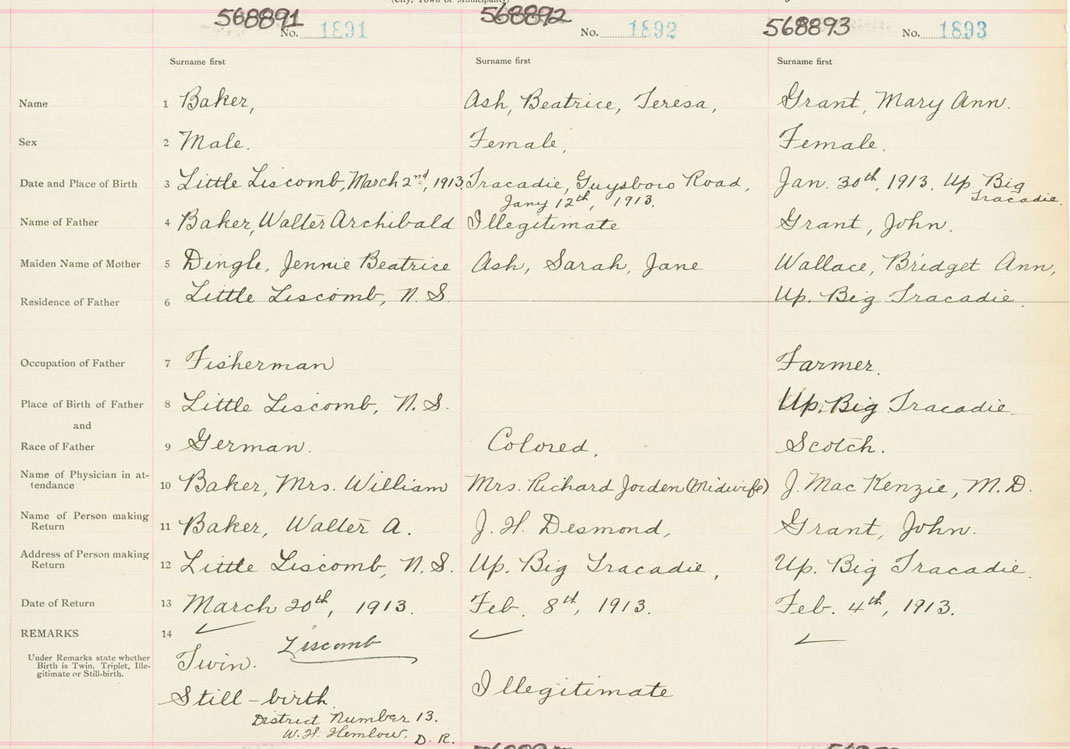 (City, Town or Municipality)
568891 568892 568893
No. 1891 No. 1892 No. 1893
Surname first Surname first Surname first
Name 1 Baker, Ash, Beatrice, Teresa, Grant, Mary Ann.
Sex 2 Male. Female, Female.
Date and Place of Birth 3 Little Liscomb, March 2nd, 1913. Tracadie, Guysboro Road, Jan. 30th, 1913. Up. Big
Jany 12th, 1913. Tracadie.
Name of Father 4 Baker, Walter Archibald Illegitimate Grant, John.
Maiden Name of Mother 5 Dingle, Jennie Beatrice Ash, Sarah, Jane Wallace, Bridget Ann,
Residence of Father 6 Little Liscomb, N. S. Up. Big Tracadie.
Occupation of Father 7 Fisherman Farmer.
Place of Birth of Father 8 Little Liscomb, N. S. Up. Big Tracadie
and
Race of Father 9 German. Colored, Scotch.
Name of Physician in at-
tendance 10 Baker, Mrs. William Mrs. Richard Jorden (Midwife) J. Mac Kenzie, M. D.
Name of Person making
Return 11 Baker, Walter A. J. H. Desmond, Grant, John.
Address of Person making
Return 12 Little Liscomb, N. S. Up. Big Tracadie, Up. Big Tracadie.
Date of Return 13 March 20th, 1913. Feb. 8th, 1913. Feb. 4th, 1913.
REMARKS 14
Liscomb
Under Remarks state whether
Birth is Twin. Triplet, Ille-
gitimate or Still-birth.
Twin.
Still-birth. Illegitimate
District Number 13.
W. H. Hemlow. D. R.